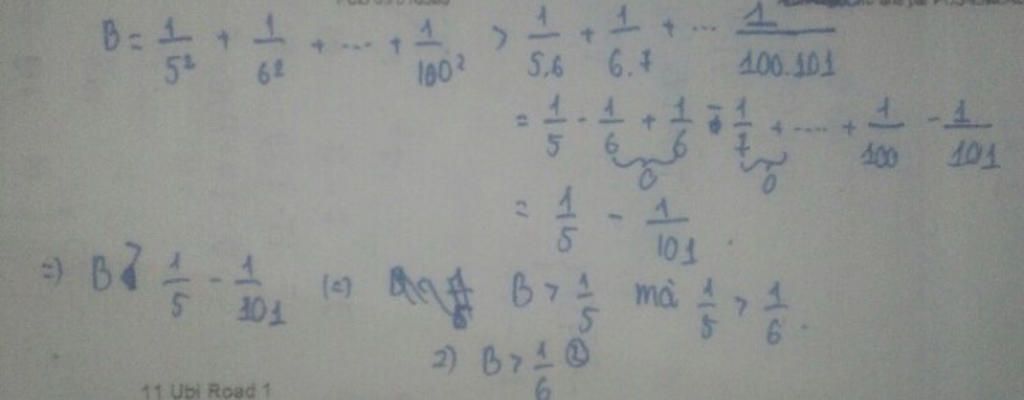 B = 1/5² + 1/6² + ... + 1/100² > 1/5.6 + 1/6.7 + ... 1/100.101
= 1/5 - 1/6 + 1/6 - 1/7 + .... + 1/100 - 1/101
0 0
= 1/5 - 1/101 .
=) B > 1/5 - 1/101 (=) B > 1/5 mà 1/5 > 1/6 .
=) B > 1/6 ②
11 Ubi Road 1